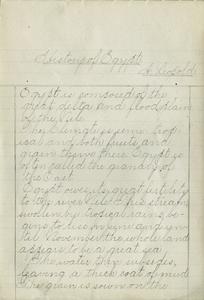 History of Egypt
A. Leold
Egypt is composed of the
great delta and flood plain
of the Nile.
The Climate is semi trop
ical and both fruits and
grain thrive there. Egypt is
often called the granary of
the East.
Egypt owes its great fertility
to the river Nile. This stream
swolen by tropical rains be-
gins to rise in June and un-
til November the whole land
appears to be a great sea.
Then the water subsides,
leaving a thick coat of mud
The grain is sown on the